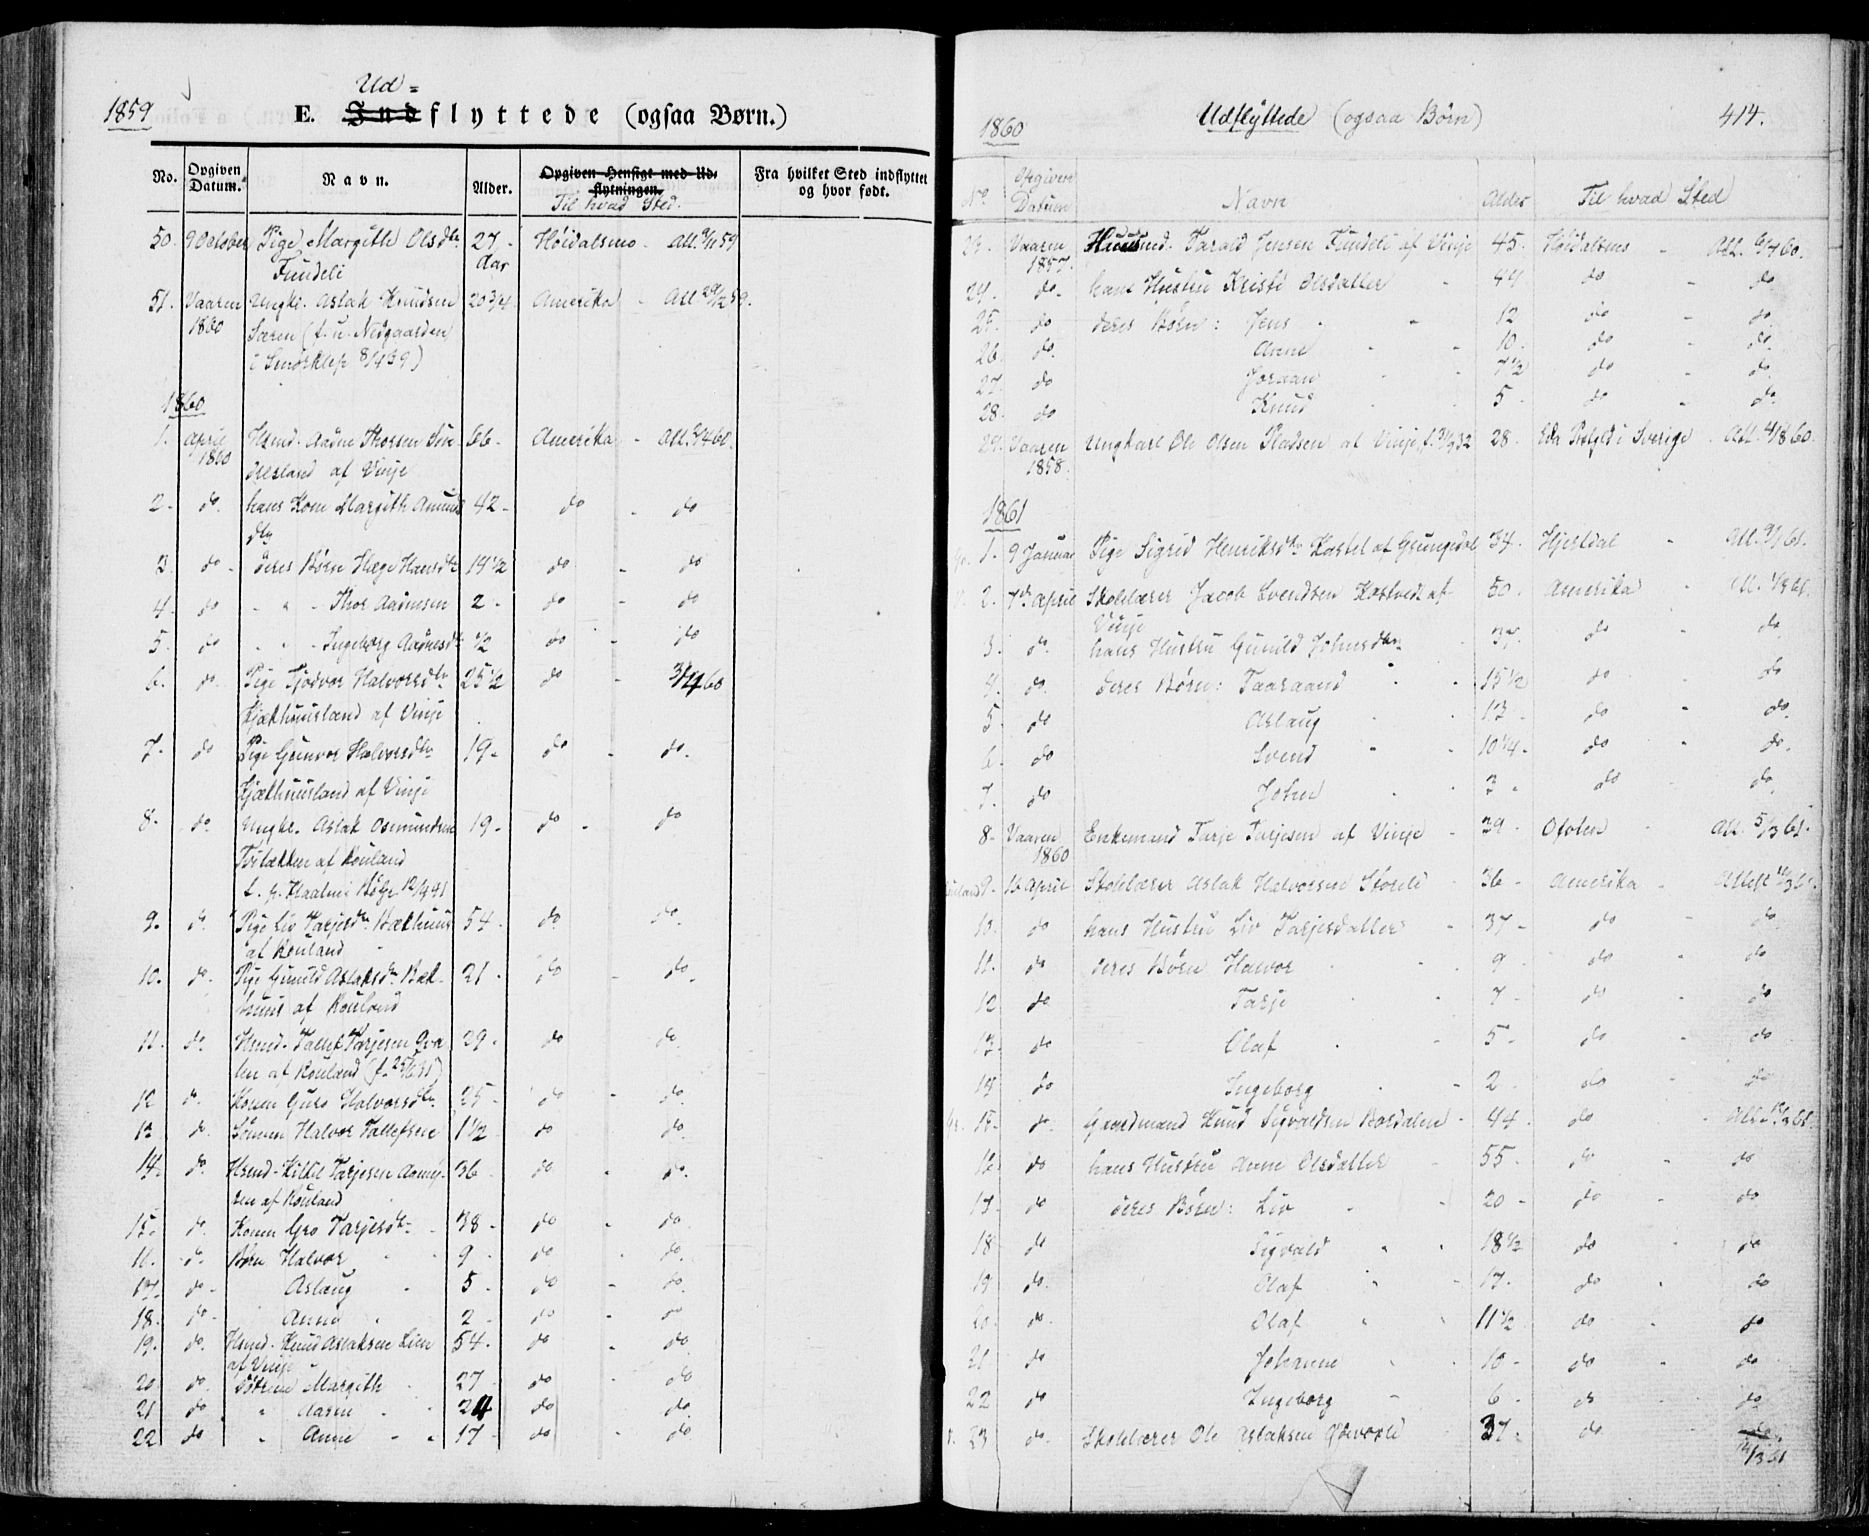 1859
Ud=
E. Indflyttede (ogsaa Børn.)
No. Opgiven Datum. Navn. Alder. Opgiven Hensigt med Udflytningen. Fra hvilket Sted indflyttet og hvor født.
Til hvad Sted.
50. 9 October Pige Margith Olsdtr 27 Høidalsmo - Att. 59
Fundeli Aar
51. Vaaren Ungk. Aslak Knudsen 20 3/4 Amerika - Att 59.
1860 (f. u. Nedgaarden
i Smørklep 8/4 39)
1860
1. April Hsmd. Aadne Thorsen 66 - Amerika - Att. 60.
1860 af Vinje
2 - do. hans Kone Margith Amunds 42 - do - do
dtr
3 do - deres Børn Hæge Hansdtr 14 1/2 do - do
4 - do - " - Thor Aadnesen 2 - do - do
5. do " - Ingeborg Aadnesdtr 1/2 do - do
6. do. Pige Tjodvor Halvorsdtr 25 1/2 do - 3/4 60
Kjækhuusland af Vinje
7 - do Pige Gunvor Halvorsdtr 19 - do - do.
Kjækhuusland af Vinje
8 - do. Ungk. Aslak Osmundsen 19 - do - do
af Rouland
12/4 41
9. do Pige Liv Tarjesdtr Bækhuus 54 - do do.
af Rouland
10. do. Pige Gunild Aslaksdtr Bæk- 21 - do - do.
huus af Rouland
11. do. Hsmd. Tallef Tarjesen 29 - do do.
af Rouland (f. 25/6 31)
12 do. Konen Guro Halvorsdtr 25 - do - do.
13 do. Sønnen Halvor Tallefsen 1 1/2 do do.
14. do. Hsmd - Kittil Tarjesen 36 - do do.
af Rouland
15. do. Konen Gro Tarjesdtr - 38 - do - do.
16. do. Børn Halvor 9 - do - do.
17. do - Aslaug 5 - do - do
18. do - Anne 2 - do - do
19. do. Hsmd - Knud Aslaksen Lien 54 - do - do
af Vinje
20. do. Døttrene Margith 27 - do - do
21 do " Aasne 24 do do.
22 do " Anne - 17 - do - do
1860 Udflyttede (ogsaa Børn) 414.
No Opgiven Datum Navn Alder Til hvad Sted
23. Vaaren Huusmd. Tarald Jensen Fundeli af Vinje 45. Høidalsmo - Att. 60.
1857.
24. do - hans Hustru Kristi Olsdatter 44 do - do
25. do deres Børn: Jens 12 do - do.
26. do. Anne 10. do - do.
27. do Joraan 7 1/2 do do.
28. do Knud 5 - do - do.
29. Vaaren Ungkarl Ole Olsen Pladsen af Vinje, f. 32 28. Eda i Sverige - Att. 60.
1858.
1861
1. 9 Januar Pige Sigrid Henriksdtr af Grungedal 34. Hjertdal - Att. 61.
2. 7de April Skolelærer Jacob Svendsen Kostvedt af 50. Amerika - Att. 61.
Vinje
3. do. hans Hustru Gunild Johnsdtr - 37. do - do
4. do. deres Børn: Taaraand - 15 1/2 do - do
5. do Aslaug 13 - do - do.
6. do Svend 10 1/4 - do - do.
7. do John 3 - do - do.
8 - Vaaren Enkemand Tarje Tarjesen af Vinje - 39 - Ofoten - Att. 5/3 61.
1860
9 - 13 April Skolelærer Aslak Halvorsen 36 - Amerika - Attest 61.
10. do hans Hustru Liv Tarjesdatter - 37 - do - do.
11. do deres Børn Halvor 9 - do - do
12 do Tarje 7 - do - do
13. do Olaf 5 - do - do
14 do Ingeborg 2 - do do
15. do. Gaardmand Knud Sigvaldsen 44. do - Att. 61.
16 do hans Hustru Anne Olsdatter - 55. do - do
17 do deres Børn: Liv 20 - do - do
18 do Sigvald 18 1/2 do do
19 do. Olaf 17. do - do
20. do. Olaf 11 1/2 do - do
21 do Johanne 10 - do - do
22 do Ingeborg 6 - do - do
23 do. Skolelærer Ole Aslaksen 37 - do - do
61